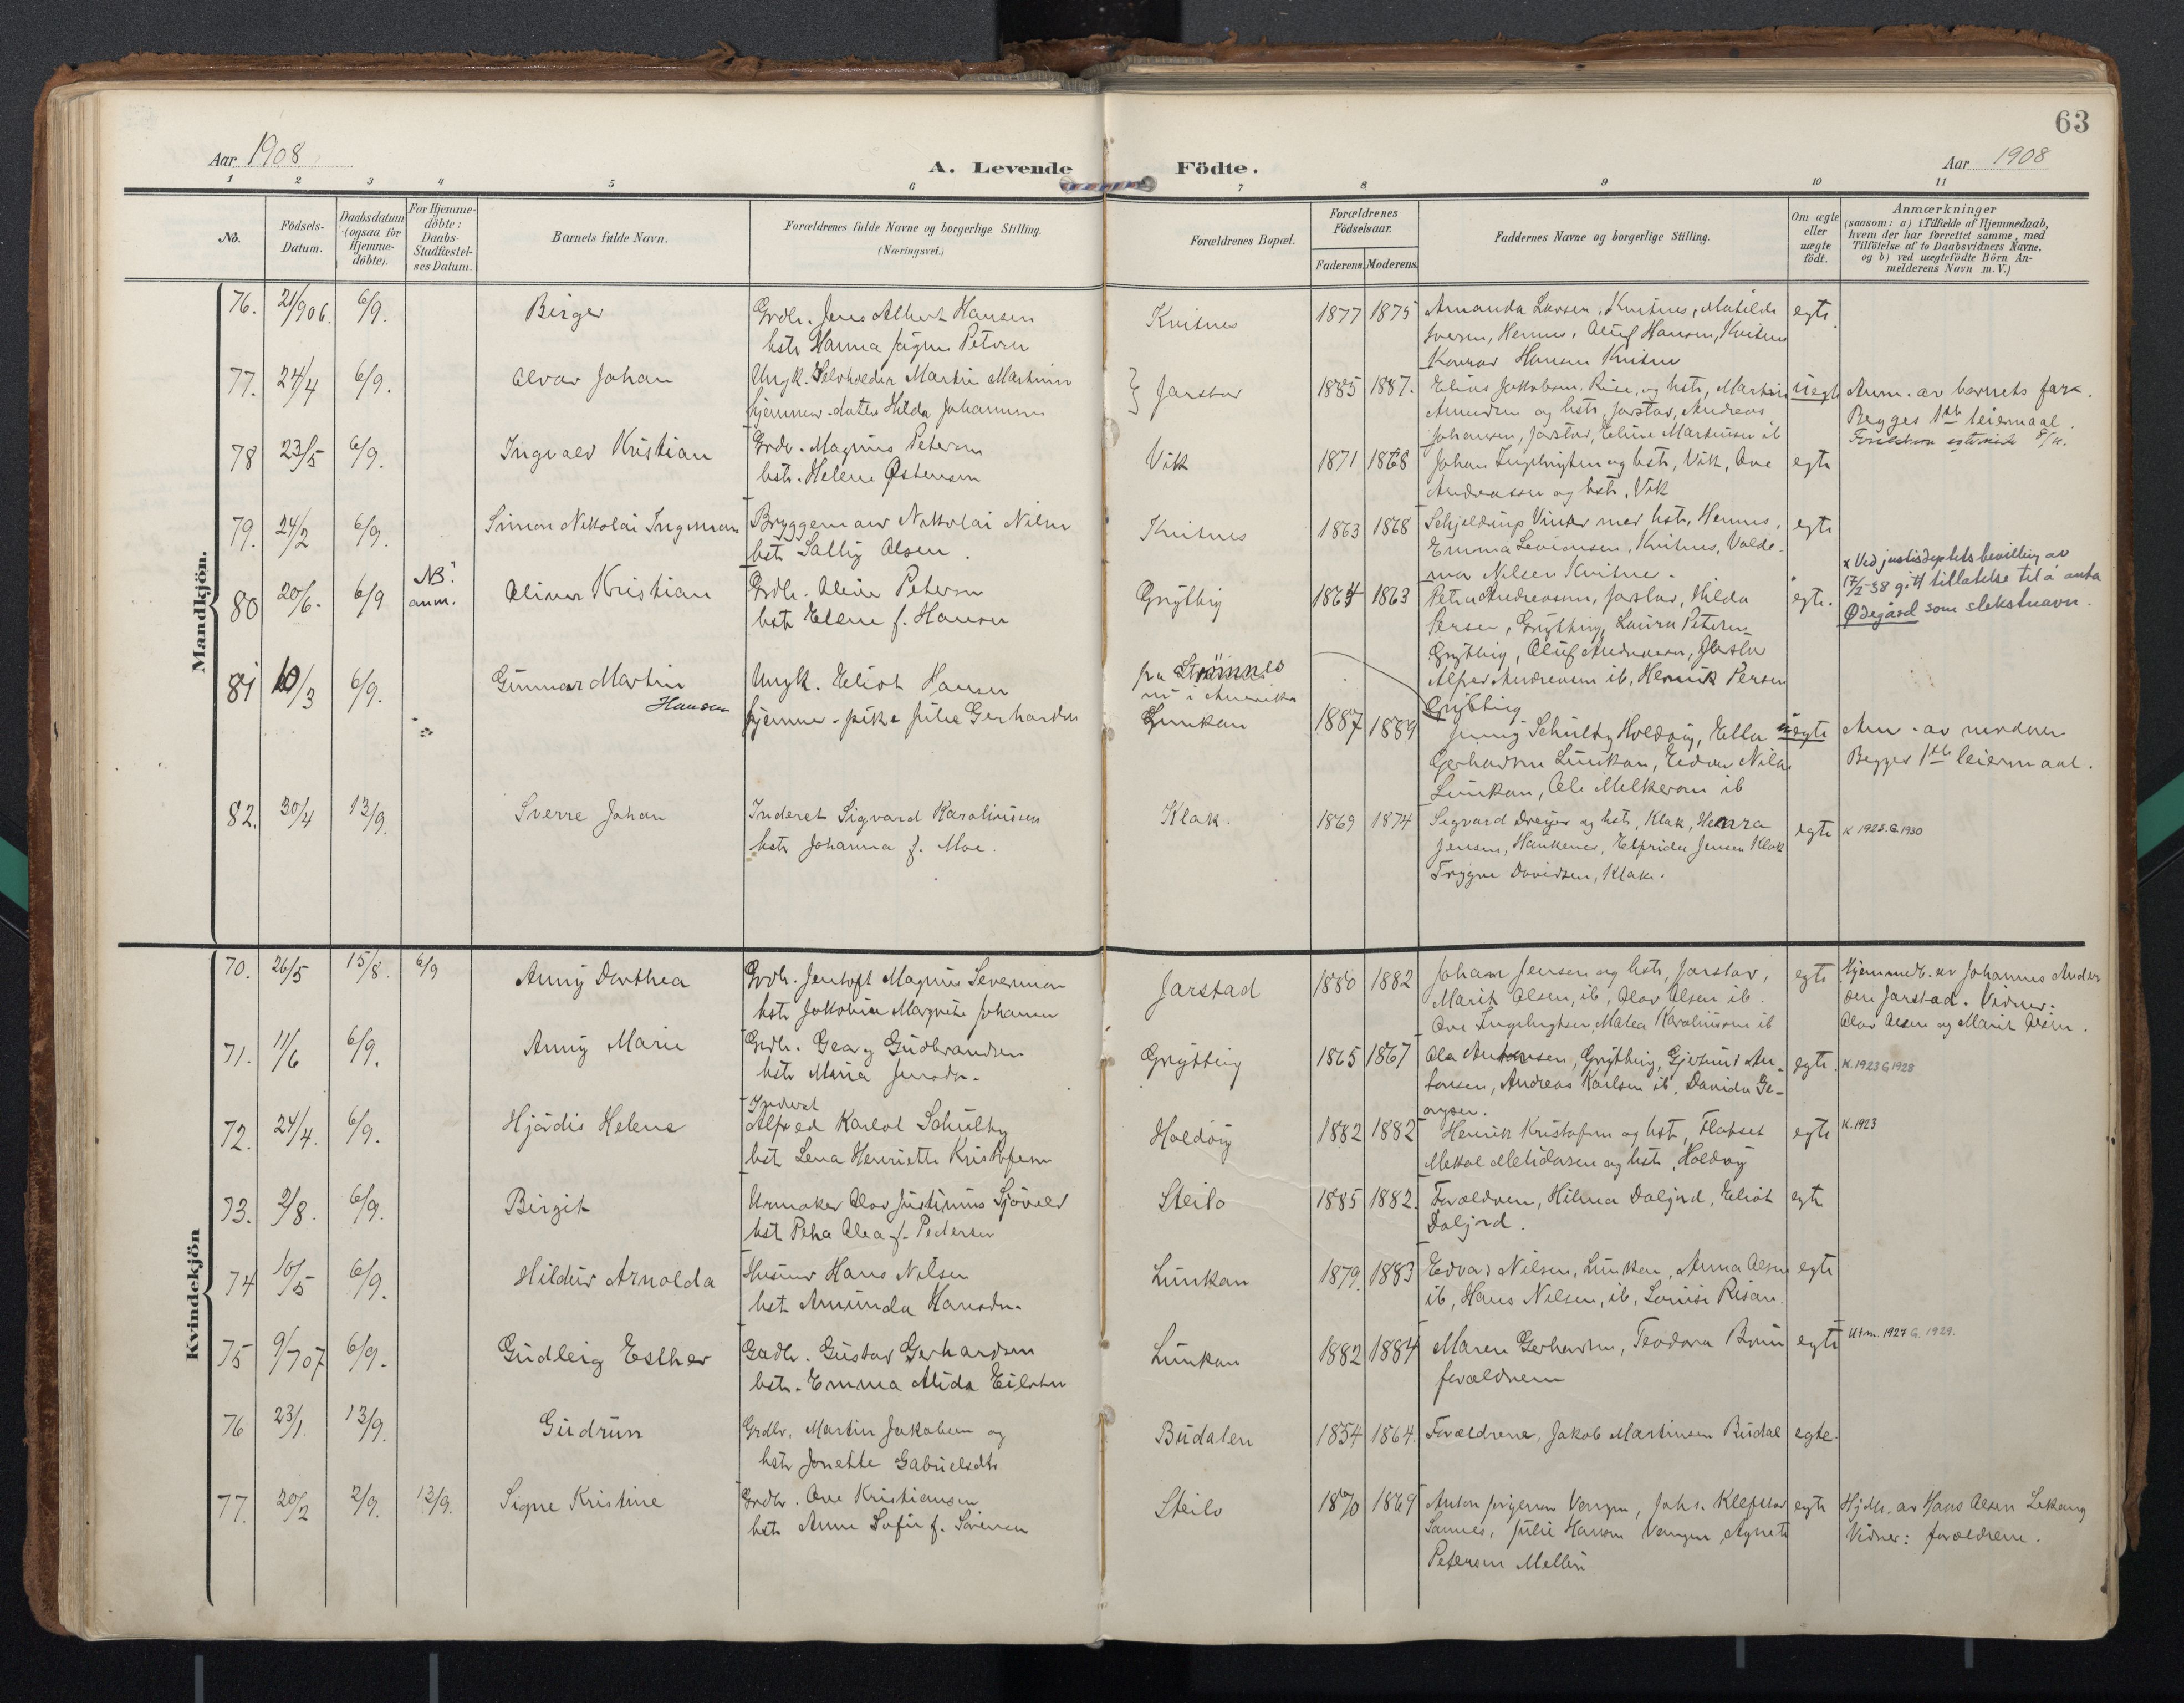 63
Aar 1908
A. Levende Födte.
Aar 1908
1 2 3 4 5 6 7 8 9 10 11
No.
Födsels-Datum.
Daabsdatum (ogsaa for Hjemme-döbte).
For Hjemme-döbte: Daabs-Stadfæstel-ses Datum.
Barnets fulde Navn.
Forældrenes fulde Navne og borgerlige Stilling. (Næringsvei.)
Forældrenes Bopæl.
Forældrenes Födselsaar.
Faderens. Moderens.
Faddernes Navne og borgerlige Stilling.
Om ægte eller uægte födt.
Anmærkninger
(saasom: a) i Tilfælde af Hjemmedaab,
hvem der har forrettet samme, med
Tilföielse af to Daabsvidners Navne.
og b) ved uægtefödte Börn An-
melderens Navn m. V.)
Mandkjön.
76. 21/9 06. 6/9. Birger
Grdbr. Jens Albert Hansen
hstr Hanna Petersn
Kvitnes 1877 1875
Amanda Larsen, Kvitnes, Matilde
Iversen, Hennes, Oluf Hansen, Kvitnes
Konrad Hansen Kvitnes
egte
77. 24/4 6/9. Alvar Johan
Ungk. Selvholder Martin Martinsen
hjemmev. datter Hilda Johannesen
Jarstad 1885 1887.
Elias Jakobsen. og hstr, Martin
Amundsen og hstr, Jarstad, Andreas
Johansen, Jarstad, Eline Martinsen ib
uegte
Anm. av barnets far.
Begges 1ste leiermaal.
78 23/5 6/9. Ingvald Kristian
Grdbr. Magnus Petersen
hstr. Helene Østensen
Vik 1871 1868
Johan Ingebrigtsen og hstr, Vik, Ove
Andreassen og hstr, Vik
egte
79. 24/2 6/9. Simon Nikolai Ingeman
Bryggemand Nikolai Nilsen
hstr Sallig Olsen.
Kvitnes 1863 1868
Schjelderup Vinter med hstr, Hennes,
Emma Levionsen, Kvitnes, Valde-
mar Nilsen Kvitnes.
egte
80 20/6. 6/9 NB. anm. Oliver Kristian
Grdbr. Petersen
hstr Elene f. Hansen
Grytting 1864 1863
Petra Andreassen, Jarstad, Hilda
Persen, Grytting, Laura Petersen
Grytting, Oluf Andreassen, Jarstad
Alfred Andreassen ib, Henrik Persen
Grytting
egte.
x Ved justisdeptets bevilling av
17/2-38 gitt tillatelse til å anta
Ødegård som slektsnavn.
81 10/3 6/9. Gunnar Martin
Hansen
Ungk. Eliot Hansen
hjemmev. pike Julie Gerhardsen
fra Strömnes
nu i Amerika
Lunkan 1887 1889
Jenny Schultz Holdöy, Ella
Gerhardsen Lunkan, Edvard Nilsen
Lunkan, Ole Melkersen ib
uegte
Anm. av moderen
Begges 1ste leiermaal.
82. 30/4 13/9. Sverre Johan
Inderst Sigvard Karoliussen
hstr Johanna f. Moe.
Klak. 1869 1874
Sigvard Dreyer og hstr, Klak, Henra
Jensen, Haukenes, Elfrida Jensen Klak
Trygve Davidsen, Klak.
egte
K 1923. G. 1930
Kvindekjön
70. 26/5 15/8. 6/9 Anny Dorthea
Grdb. Jentoft Magnus Severinsen
hstr Jakobine Margrethe Johansen
Jarstad 1880 1882
Johan Jensen og hstr, Jarstad,
Marit Olsen, ib, Olav Olsen ib.
Ove Ingebrigtsen, Matea Karoliussen ib
egte
Hjemmedb. av Johannes Ander
sen Jarstad. Vidner:
Olav Olsen og Marit Olsen.
71. 11/6 6/9. Anny Marie
Grdb. Georg Gudbrandsen
hstr Maria Jensdtr.
Grytting 1865 1867
Ola Antonsen, Grytting, Gjertrud An-
tonsen, Andreas Karlsen ib, Davida Ge-
orgsen.
egte.
K. 1923 G 1928
72. 24/4. 6/9. Hjördis Helene
Inderst
Alfred Karlot Schultz
hstr Lena Henriette Kristofersen
Holdöy 1882 1882
Henrik Kristofersen og hstr, Flatset
Mekal Melidorsen og hstr, Holdöy
egte
K. 1923
73. 2/8. 6/9. Birgit
Urmaker Olav Justinius Sjövold
hst Petra Olea f. Pedersen
Steilo 1885 1882.
Forældrene, Hilma Daljord, Eliot
Daljord.
egte
74 10/5 6/9. Hildur Arnolda
Husmd Hans Nilsen
hst Amunda Hansdtr.
Lunkan 1879. 1883
Edvard Nilsen, Lunkan, Anna Olsen
ib, Hans Nilsen, ib, Louise Risan.
egte
75 9/7 07 6/9. Gudleig Esther
Gadbr. Gustav Gerhardsen
hstr. Emma Alida Eilertsen
Lunkan 1882 1884
Maren Gerhardsen, Teodora Bruun
forældrene
egte
Utm. 1927 G. 1929.
76 23/1. 13/9. Gudrun
Grdbr. Martin Jakobsen og
hstr Jonette Gabrielsdtr
Budalen 1854 1864.
Forældrene, Jakob Martinsen Budal
egte.
77. 20/2 2/9. 13/9. Signe Kristine
Grdbr. Ove Kristiansen
hst Anne Sofie f. Sörensen
Steilo 1870 1869
Anton Jörgensen Vangen, Johs. Klefstad
Sannes, Julie Hansen Vangen, Agnete
Petersen Mellin
egte
Hjdb. av Hans Olsen Lekang
Vidner: forældrene.